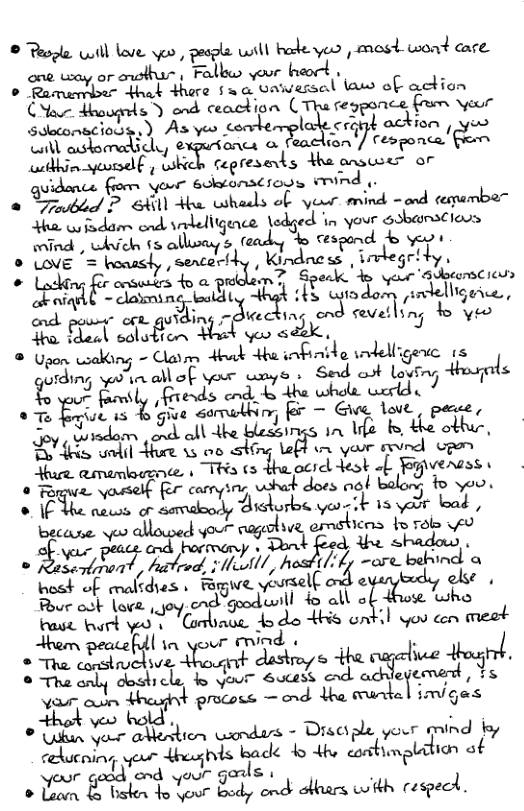 • People will love you, people will hate you, most wont care
one way or another. Follow your heart.
• Remember that there is a universal law of action
(Your thoughts) and reaction (The responce from your
subconscious.) As you contemplate right action, you
will automaticly experiance a reaction / responce from
within yourself, which represents the answer or
guidance from your subconscious mind.
• Troubled? Still the wheels of your mind - and remember
the wisdom and intelligence lodged in your subconscious
mind, which is allways ready to respond to you.
• LOVE = honesty, sencerity, Kindness, integrity.
• Looking for answers to a problem? Speak to your subconscious
at night - claiming boldly that its wisdom, intelligence,
and power are guiding, - directing and reveiling to you
the ideal solution that you seek.
• Upon waking - Claim that the infinite intelligenc is
guiding you in all of your ways. Send out loving thoughts
to your family, friends and to the whole world.
• To forgive is to give something for - Give love, peace,
joy, wisdom, and all the blessings in life to the other.
Do this until there is no sting left in your mind upon
there rememberence. This is the acid test of forgiveness.
• Forgive yourself for carrying what does not belong to you.
• If the news or somebody disturbs you - it is your bad,
because you allowed your negative emotions to rob you
of your peace and harmony. Dont feed the shadow.
• Resentment, hatred, illwill, hostility - are behind a
host of maladies. Forgive yourself and everybody else.
Pour out love, joy and goodwill to all of those who
have hurt you. Continue to do this until you can meet
them peacefull in your mind.
• The constructive thought destrays the negative thought.
• The only obsticle to your sucess and achievement, is
your own thought process - and the mental imiges
that you hold.
• When your attention wonders - Disciple your mind by
returning your thoughts back to the contimplation of
your good and your goals.
• Learn to listen to your body and others with respect.